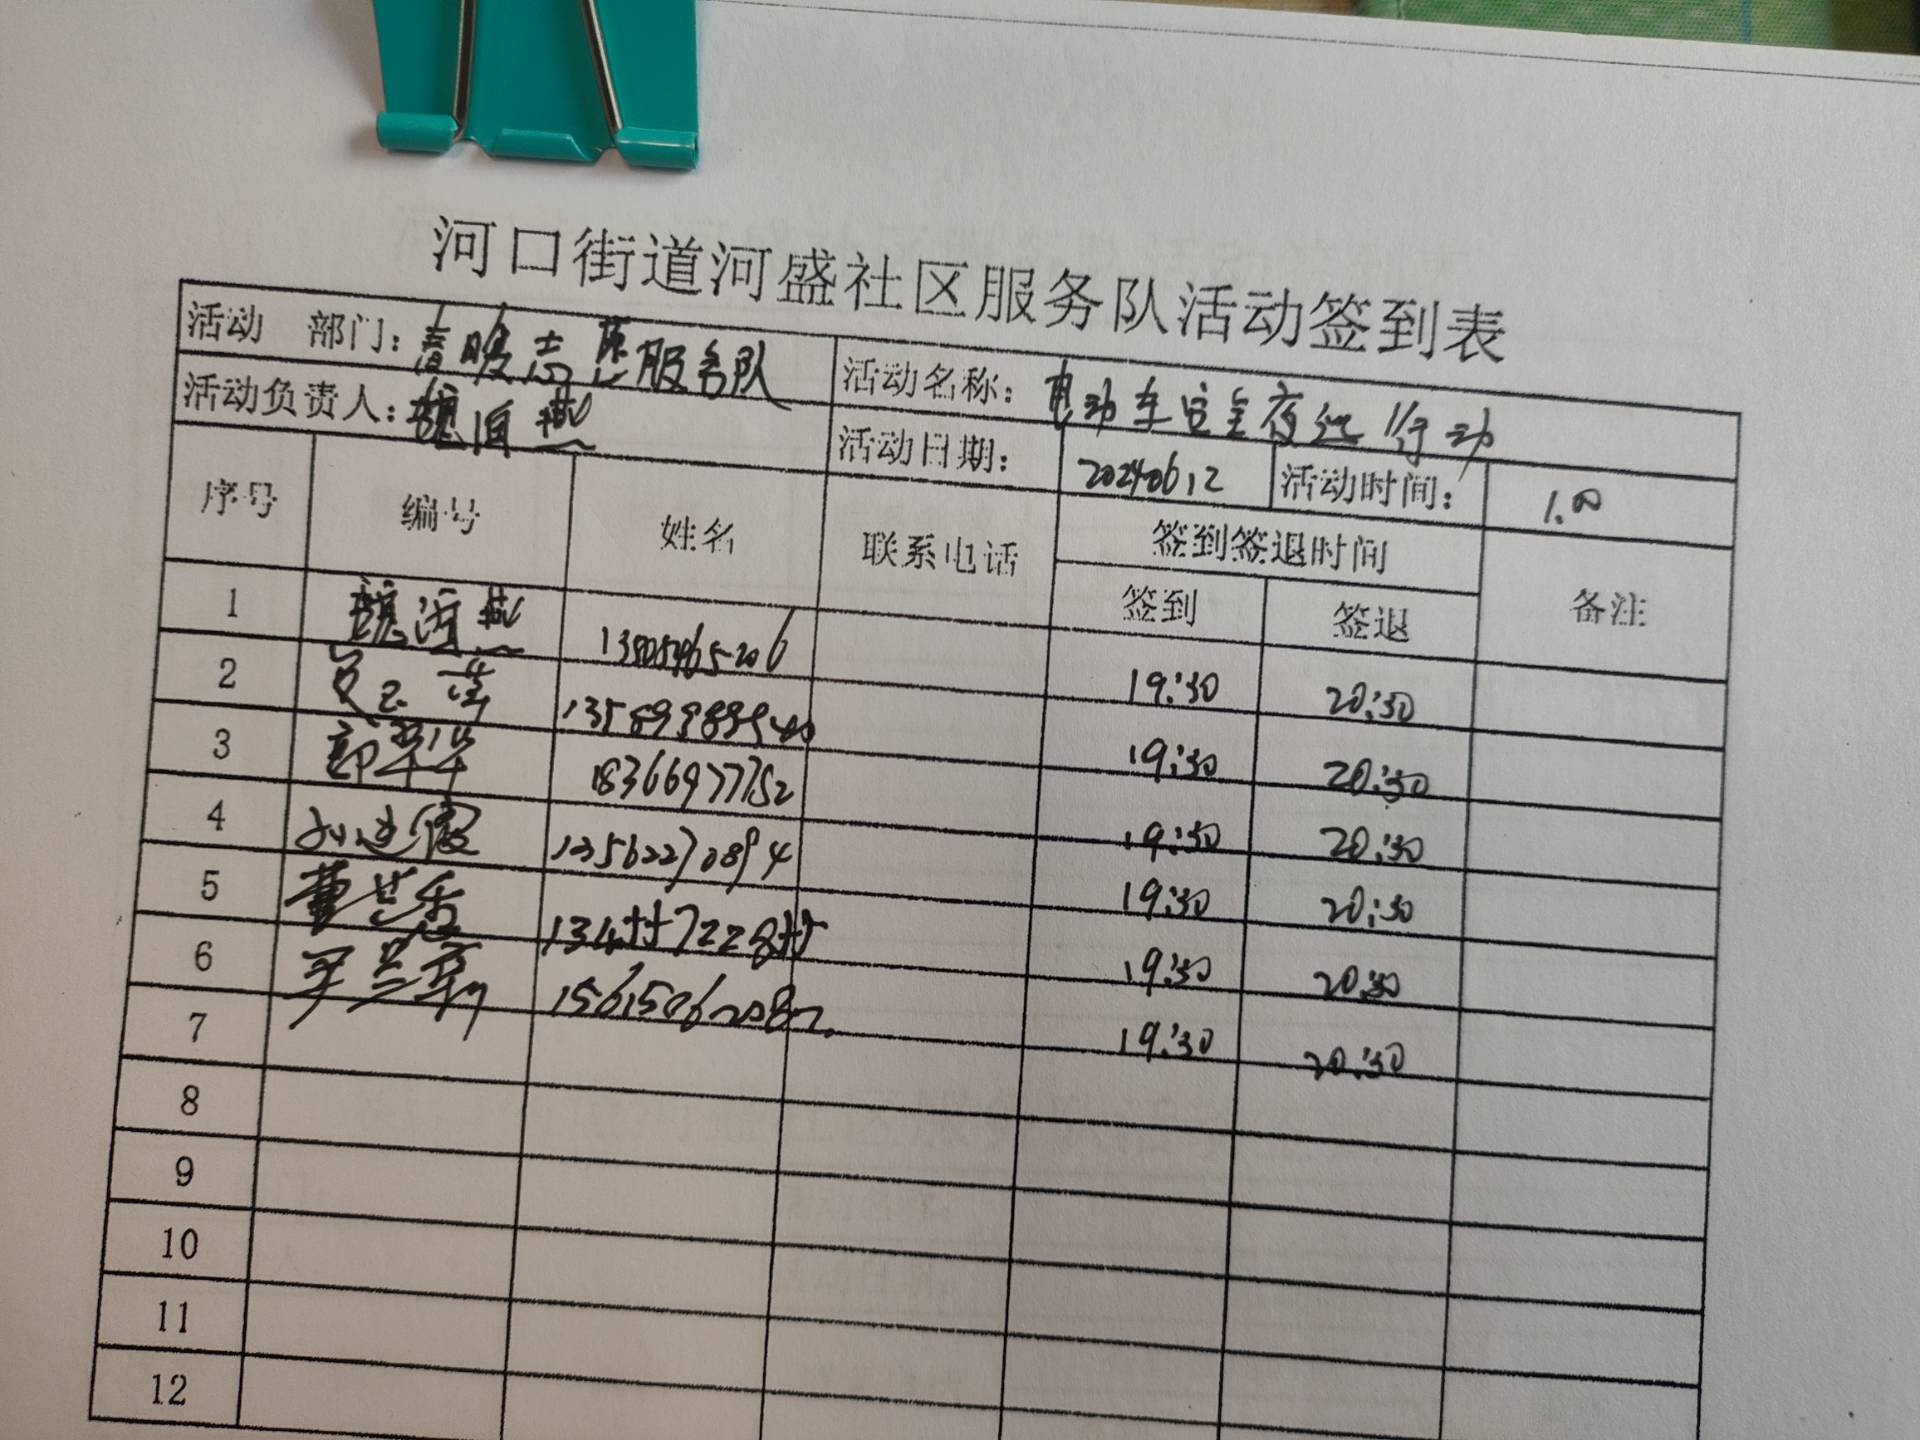 河口街道河盛社区服务队活动签到表
活动 部门：春暖志愿服务队 活动名称：电动车安全夜巡行动
活动负责人：魏 燕 活动日期： 20240612 活动时间： 1.00
序号 编号 姓名 联系电话 签到签退时间 备注
签到 签退
1 魏 燕 13505465206 19:30 20:30
2 13589989540 19:30 20:30
3 郭翠华 18366977752 19:30 20:30
4 13562270894 19:30 20:30
5 董兰香 19:30 20:30
6 兰军 15615062082 19:30 20:30
7
8
9
10
11
12